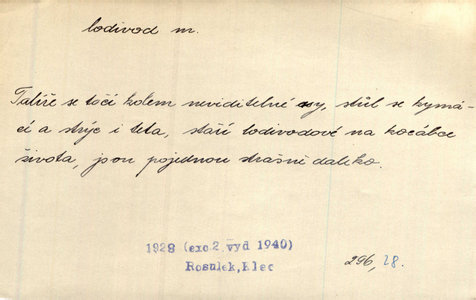 lodivod m.
Talíře se točí kolem neviditelné osy, stůl se kymá-
cí a strýc i teta, staří lodivodové na kocábce
života, jsou pojednou strašně daleko.
1928 (exc.2. vyd 1940)
Rosulek, Klec
296, 28.